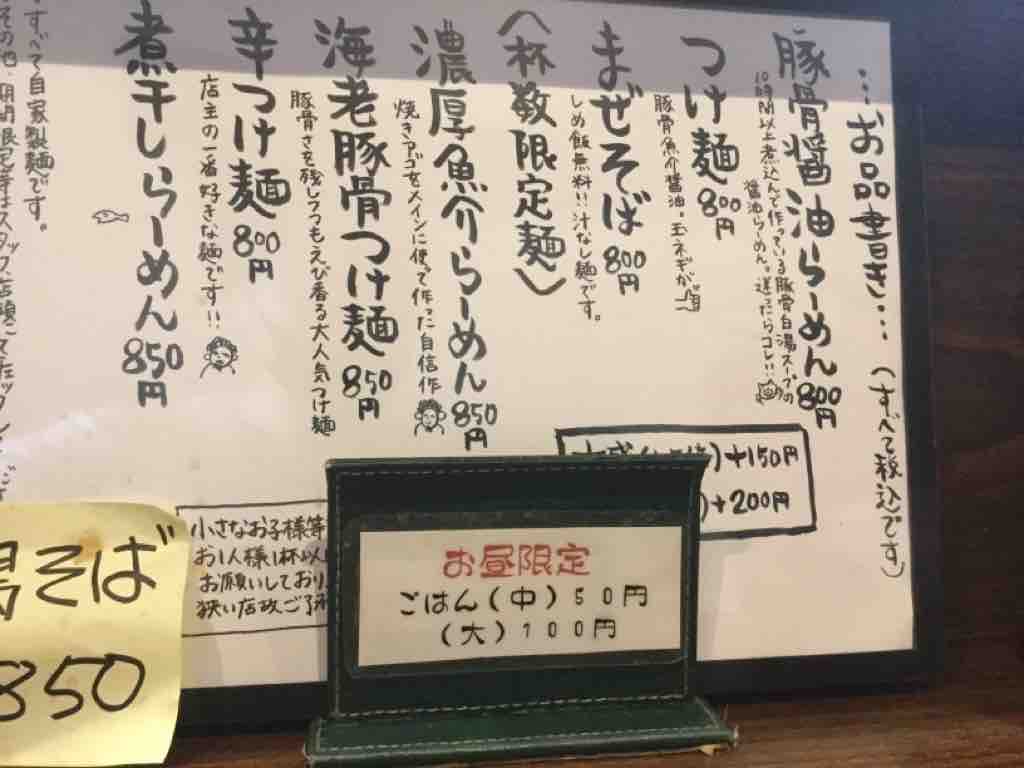 …お品書き…(すべて税込です)
豚骨醤油らーめん 800円
10時間以上煮込んで作っている豚骨白湯スープの
醤油らーめん。迷ったらコレ!!
つけ麺 800円
豚骨魚介醤油。玉ネギが
まぜそば 800円
しめ飯無料!!汁なし麺です。
〈杯数限定麺〉
濃厚魚介らーめん 850円
焼きアゴをメインに使って作った自信作
海老豚骨つけ麺 850円
豚骨さを残しつつもえび香る大人気つけ麺
辛つけ麺 800円
店主の一番好きな麺です!!
煮干しらーめん 850円
すべて自家製麺です。
+150円
)+200円
小さなお子様等
お1人様1杯以
お願いしており
狭い店故ご了
お昼限定
ごはん(中)50円
(大)100円
そば
850